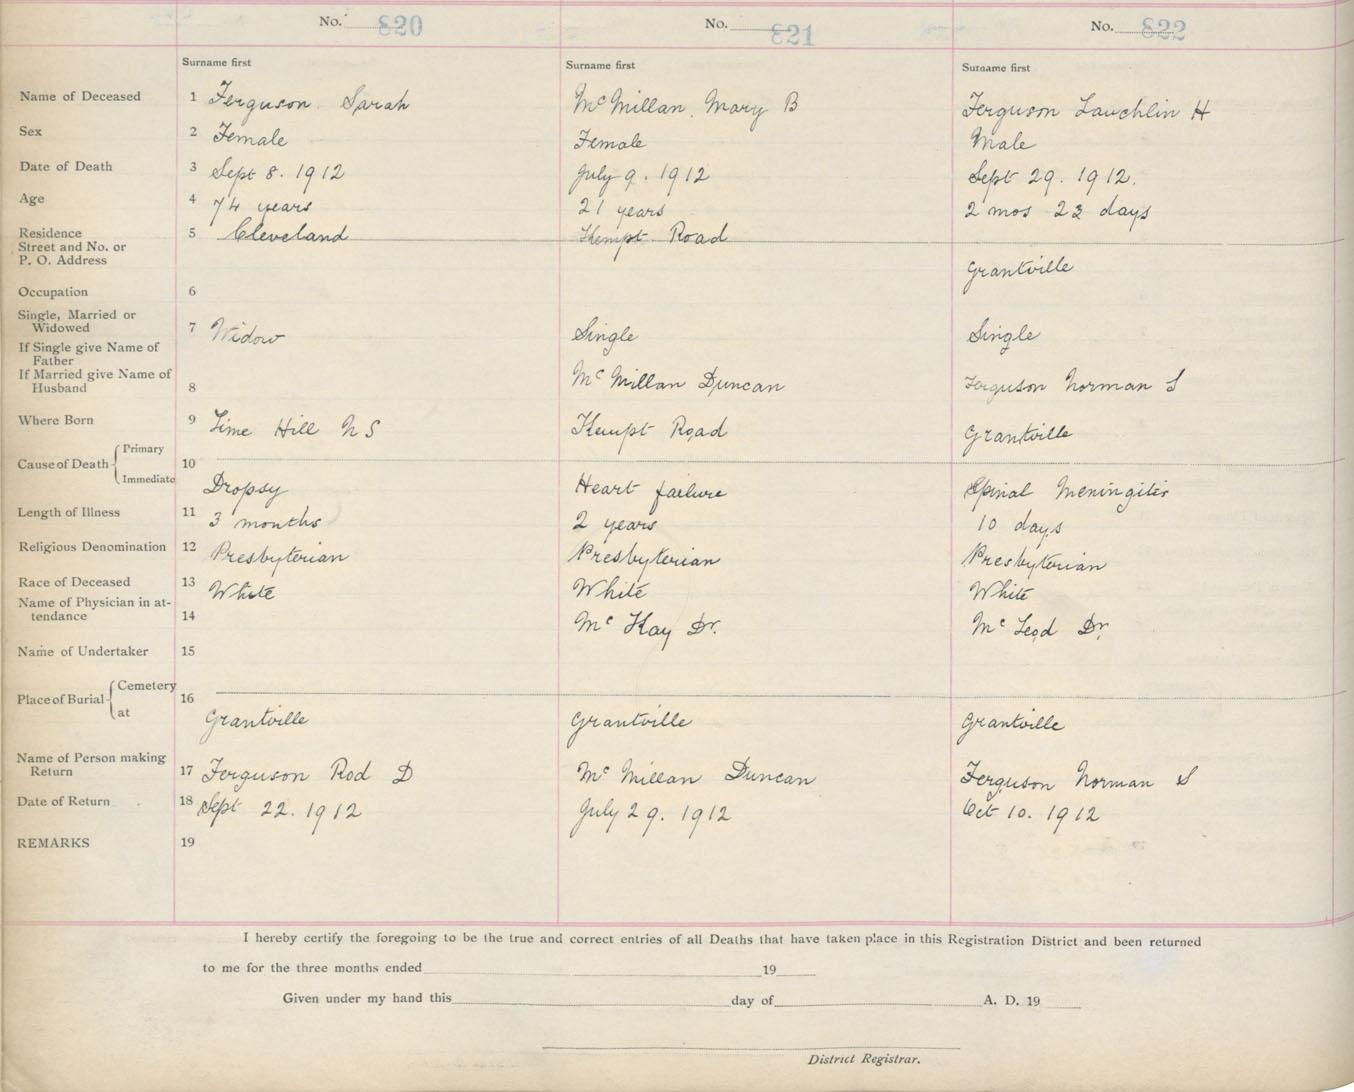 No. 820 No. 821 No. 822
Surname first Surname first Surname first
Name of Deceased 1 Ferguson Sarah McMillan Mary B Ferguson Lauchlin H
Sex 2 Female Female Male
Date of Death 3 Sept 8. 1912 July 9. 1912 Sept 29. 1912.
Age 4 74 years 21 years 2 mos 23 days
Residence 5 Cleveland Kempt Road
Street and No. or
P. O. Address Grantville
Occupation 6
Single, Married or
Widowed 7 Widow Single Single
If Single give Name of
Father
If Married give Name of
Husband 8 McMillan Duncan Ferguson Norman S
Where Born 9 Lime Hill N S Kempt Road Grantville
Primary
Cause of Death 10
Immediate Dropsy Heart failure Spinal Meningitis
Length of Illness 11 3 months 2 years 10 days
Religious Denomination 12 Presbyterian Presbyterian Presbyterian
Race of Deceased 13 White White White
Name of Physician in at-
tendance 14 McKay Dr. McLeod Dr.
Name of Undertaker 15
Cemetery
Place of Burial 16
at Grantville Grantville Grantville
Name of Person making
Return 17 Ferguson Rod D McMillan Duncan Ferguson Norman S
Date of Return 18 Sept 22. 1912 July 29. 1912 Oct 10. 1912
REMARKS 19
I hereby certify the foregoing to be the true and correct entries of all Deaths that have taken place in this Registration District and been returned
to me for the three months ended 19
Given under my hand this day of A. D. 19
District Registrar.